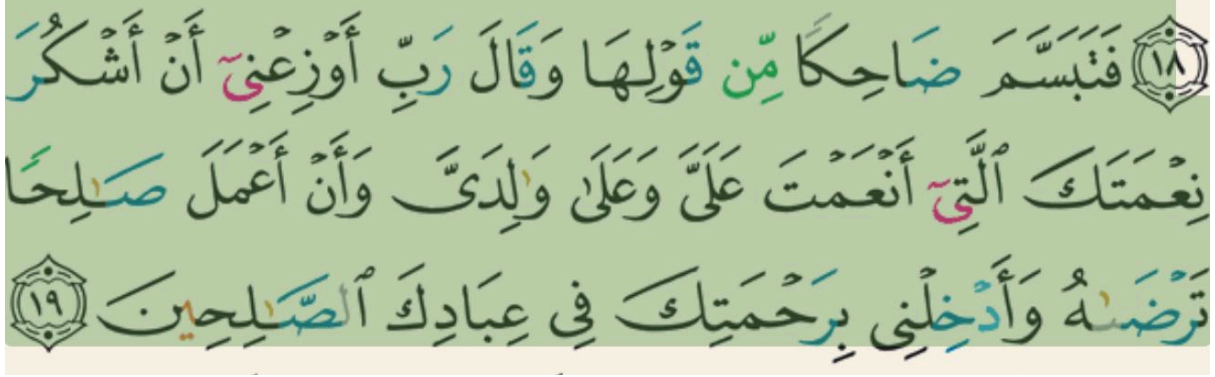 ۝١٨ فَتَبَسَّمَ ضَاحِكًا مِّن قَوْلِهَا وَقَالَ رَبِّ أَوْزِعْنِىٓ أَنْ أَشْكُرَ
نِعْمَتَكَ ٱلَّتِىٓ أَنْعَمْتَ عَلَىَّ وَعَلَىٰ وَٰلِدَىَّ وَأَنْ أَعْمَلَ صَـٰلِحًا
تَرْضَىٰهُ وَأَدْخِلْنِى بِرَحْمَتِكَ فِى عِبَادِكَ ٱلصَّـٰلِحِينَ ۝١٩